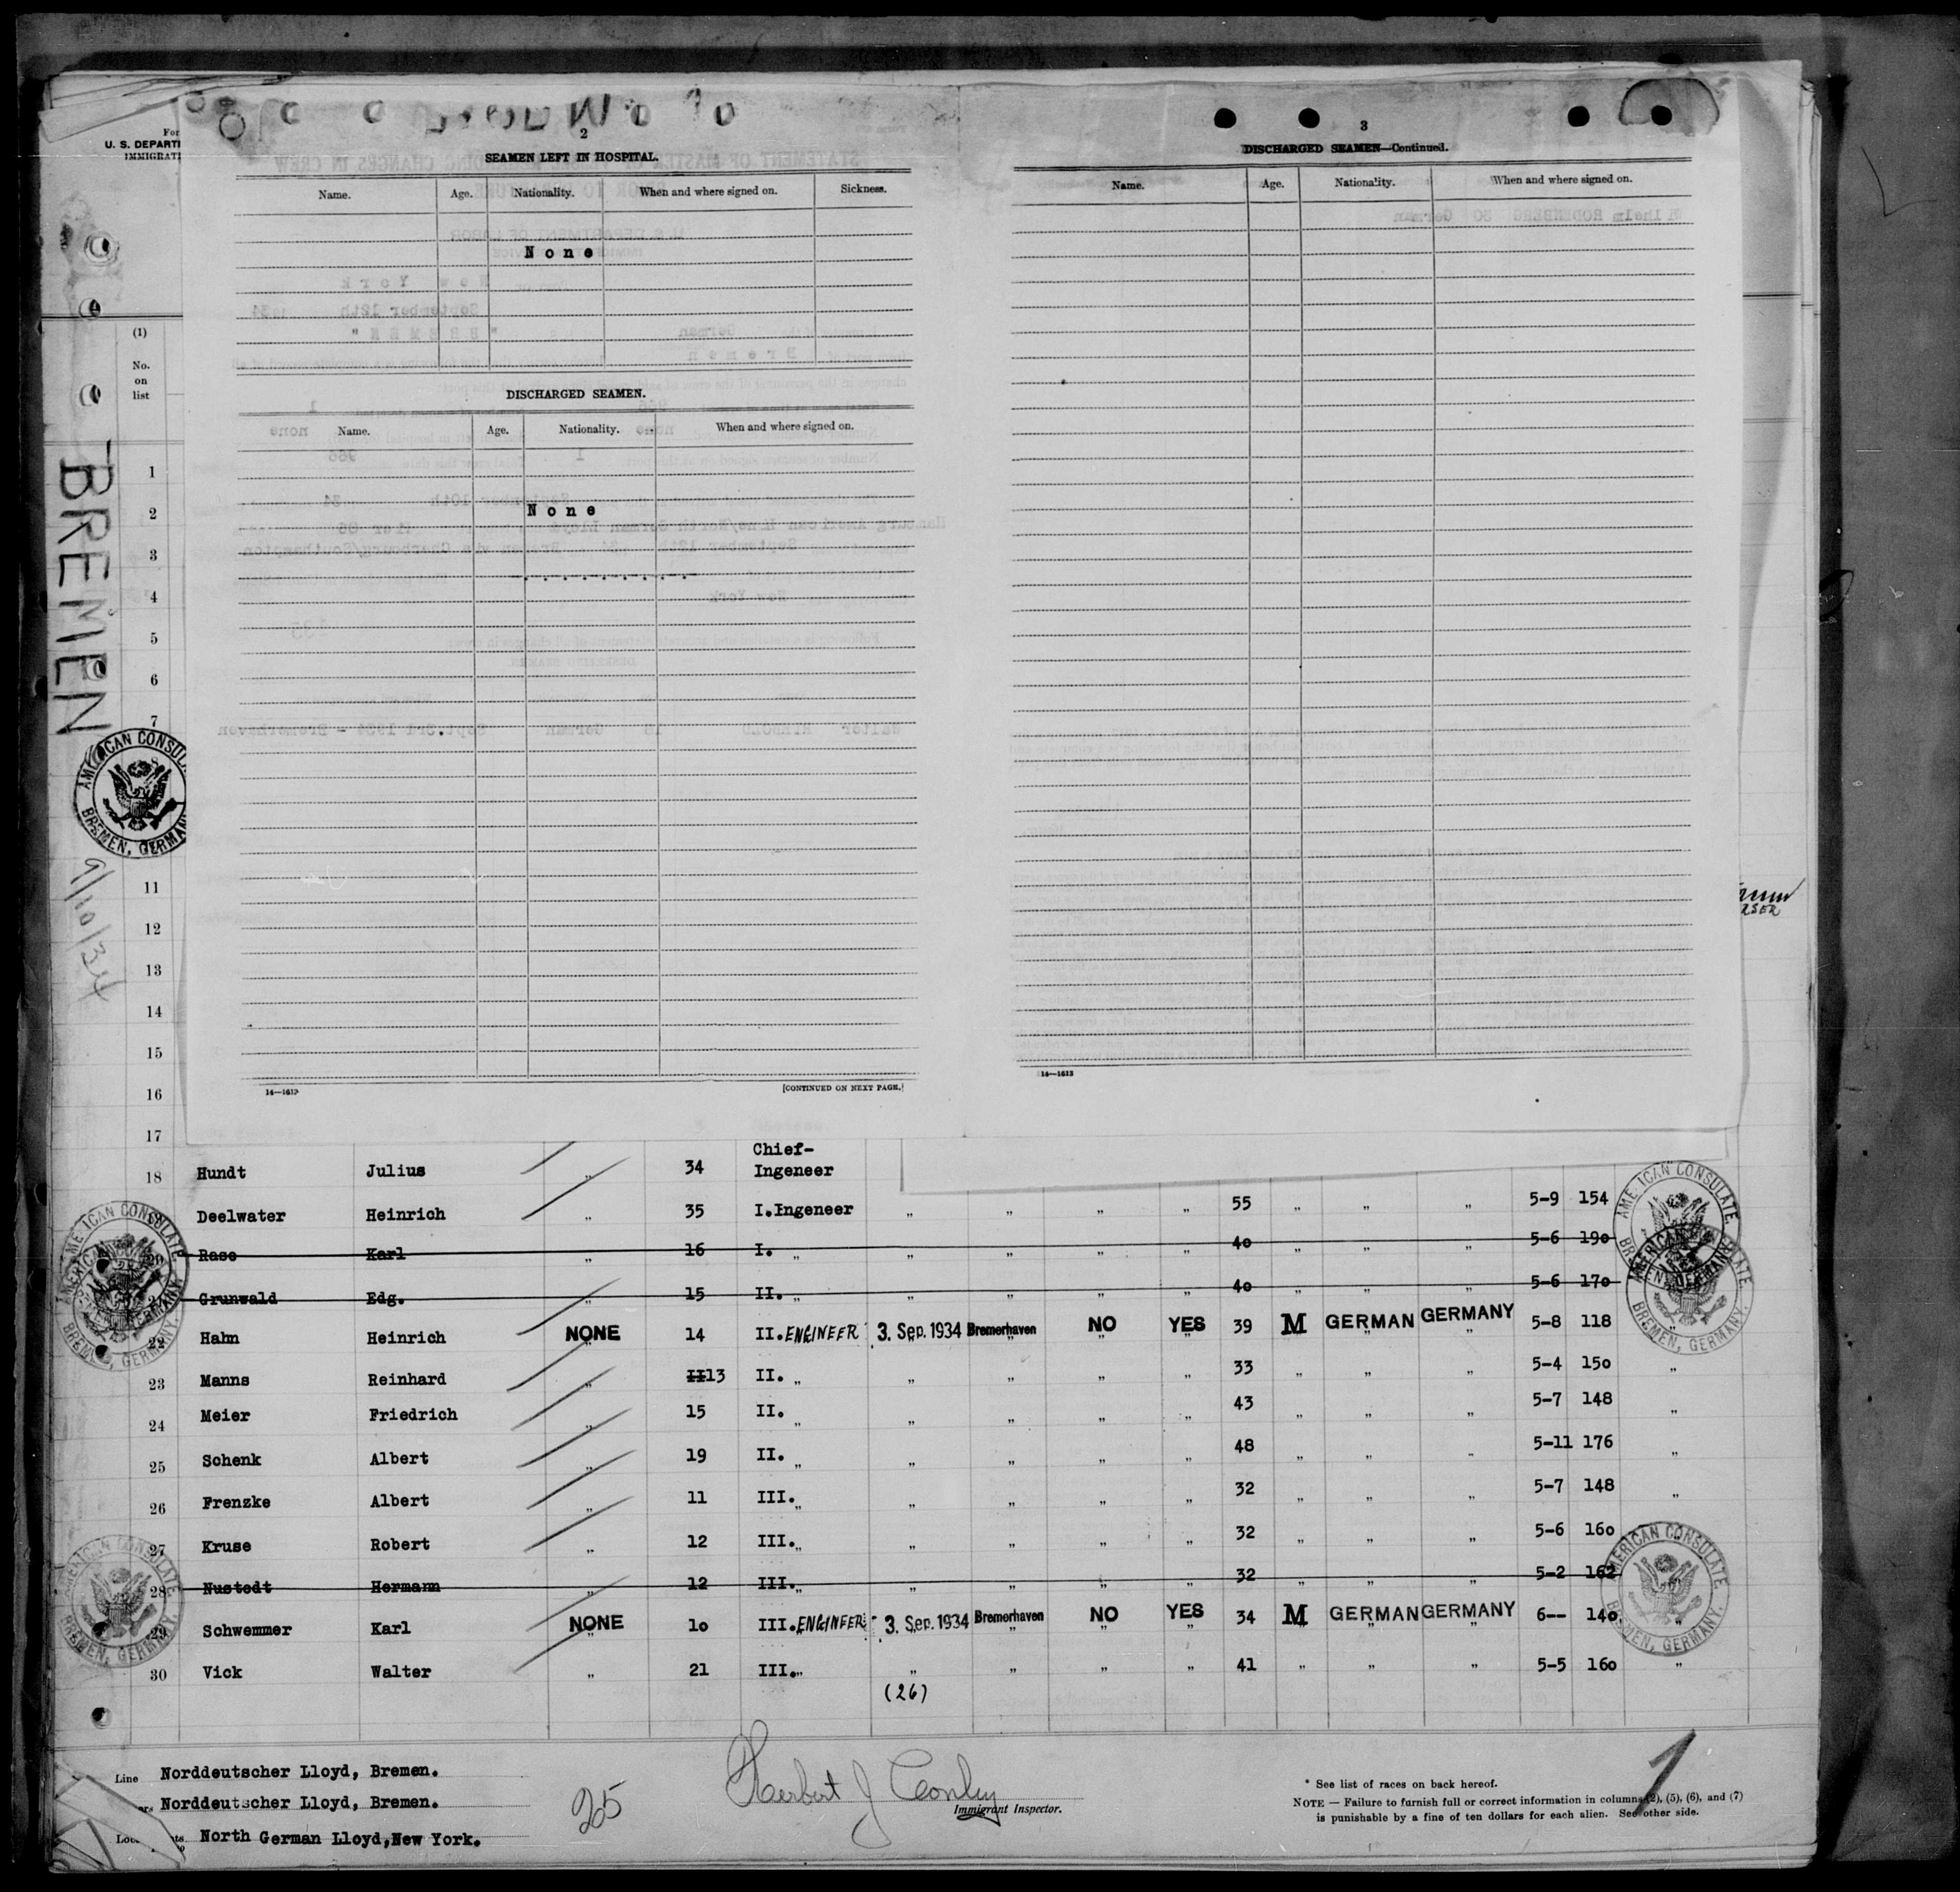 U. S. DEPARTI
IMMIGRATI
(1)
No.
on
list
BREMEN
9/10/34
AMERICAN CONSULATE
BREMEN, GERMANY
2
SEAMEN LEFT IN HOSPITAL.
Name. Age. Nationality. When and where signed on. Sickness.
None
DISCHARGED SEAMEN.
Name. Age. Nationality. When and where signed on.
None
14—1613
[CONTINUED ON NEXT PAGE.]
3
DISCHARGED SEAMEN—Continued.
Name. Age. Nationality. When and where signed on.
14—1613
1
2
3
4
5
6
7
11
12
13
14
15
16
17
18 Hundt Julius „ 34 Chief-
Ingeneer
Deelwater Heinrich „ 35 I.Ingeneer „ „ „ „ 55 „ „ „ 5-9 154
Karl „ 16 I. „ „ „ „ „ 40 „ „ „ 5-6 190
Grunwald Edg. „ 15 II. „ „ „ „ „ 40 „ „ „ 5-6 170
22 Hahn Heinrich NONE 14 II. ENGINEER 3. Sep. 1934 Bremerhaven NO YES 39 M GERMAN GERMANY 5-8 118
23 Manns Reinhard „ II13 II. „ „ „ „ „ 33 „ „ „ 5-4 150 „
24 Meier Friedrich „ 15 II. „ „ „ „ „ 43 „ „ „ 5-7 148 „
25 Schenk Albert „ 19 II. „ „ „ „ „ 48 „ „ „ 5-11 176 „
26 Frenzke Albert „ 11 III. „ „ „ „ „ 32 „ „ „ 5-7 148 „
27 Kruse Robert „ 12 III. „ „ „ „ „ 32 „ „ „ 5-6 160 „
28 Nustedt Hermann „ 12 III. „ „ „ „ „ 32 „ „ „ 5-2 162
29 Schwemmer Karl NONE 10 III. ENGINEER 3. Sep. 1934 Bremerhaven NO YES 34 M GERMAN GERMANY 6-- 140 „
30 Vick Walter „ 21 III. „ „ „ „ „ 41 „ „ „ 5-5 160 „
(26)
AMERICAN CONSULATE
BREMEN, GERMANY.
AMERICAN CONSULATE
BREMEN, GERMANY.
AMERICAN CONSULATE
BREMEN, GERMANY.
AMERICAN CONSULATE
BREMEN, GERMANY.
Line Norddeutscher Lloyd, Bremen.
Norddeutscher Lloyd, Bremen.
North German Lloyd,New York.
25
Herbert J Conley
Immigrant Inspector.
1
* See list of races on back hereof.
NOTE — Failure to furnish full or correct information in columns (2), (5), (6), and (7)
is punishable by a fine of ten dollars for each alien. See other side.